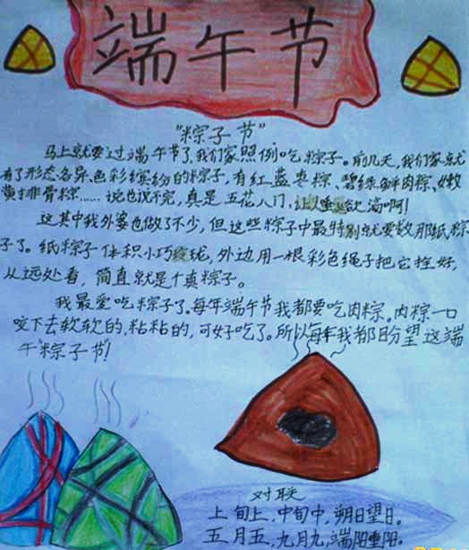 端午节
“粽子节”
马上就要过端午节了,我们家照例吃粽子。前几天,我们家就
有了形态各异色彩缤纷的粽子,有红蓝枣粽、碧绿鲜肉粽、嫩
黄排骨粽……说也说不完,真是五花八门,让人垂涎欲滴啊!
这其中我外婆也做了不少,但这些粽子中最特别就要数那纸粽
子了。纸粽子体积小巧玲珑,外边用一根彩色绳子把它拴好,
从远处看,简直就是个真粽子。
我最爱吃粽子了。每年端午节我都要吃肉粽。肉粽一口
咬下去软软的,粘粘的,可好吃了。所以每年我都盼望这端
午“粽子节”!
对联
上旬上,中旬中,朔日望日。
五月五,九月九,端阳重阳。